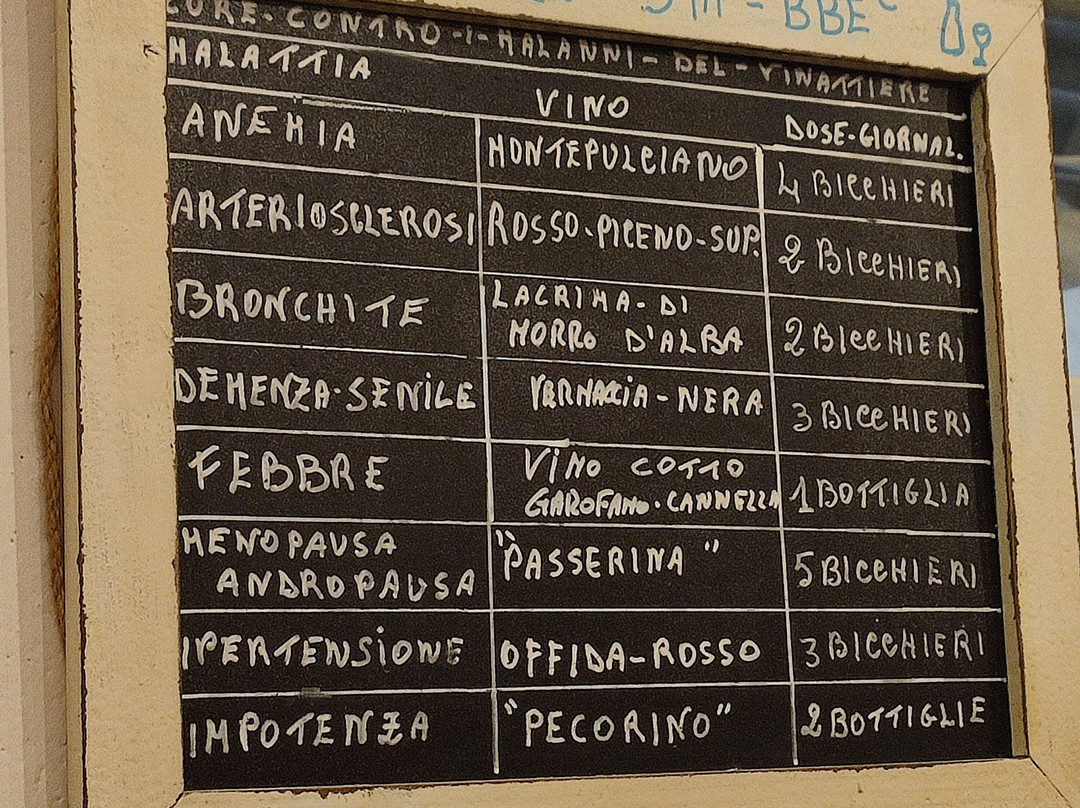 BBE
CURE-CONTRO-I-MALANNI-DEL-VINATTIERE
MALATTIA VINO DOSE-GIORNAL.
ANEMIA MONTEPULCIANO 4 BICCHIERI
ARTERIOSCLEROSI ROSSO-PICENO-SUP. 2 BICCHIERI
BRONCHITE LACRIMA-DI
MORRO D'ALBA 2 BICCHIERI
DEMENZA-SENILE VERNACCIA-NERA 3 BICCHIERI
FEBBRE VINO COTTO
GAROFANO-CANNELLA 1 BOTTIGLIA
MENOPAUSA
ANDROPAUSA "PASSERINA" 5 BICCHIERI
IPERTENSIONE OFFIDA-ROSSO 3 BICCHIERI
IMPOTENZA "PECORINO" 2 BOTTIGLIE